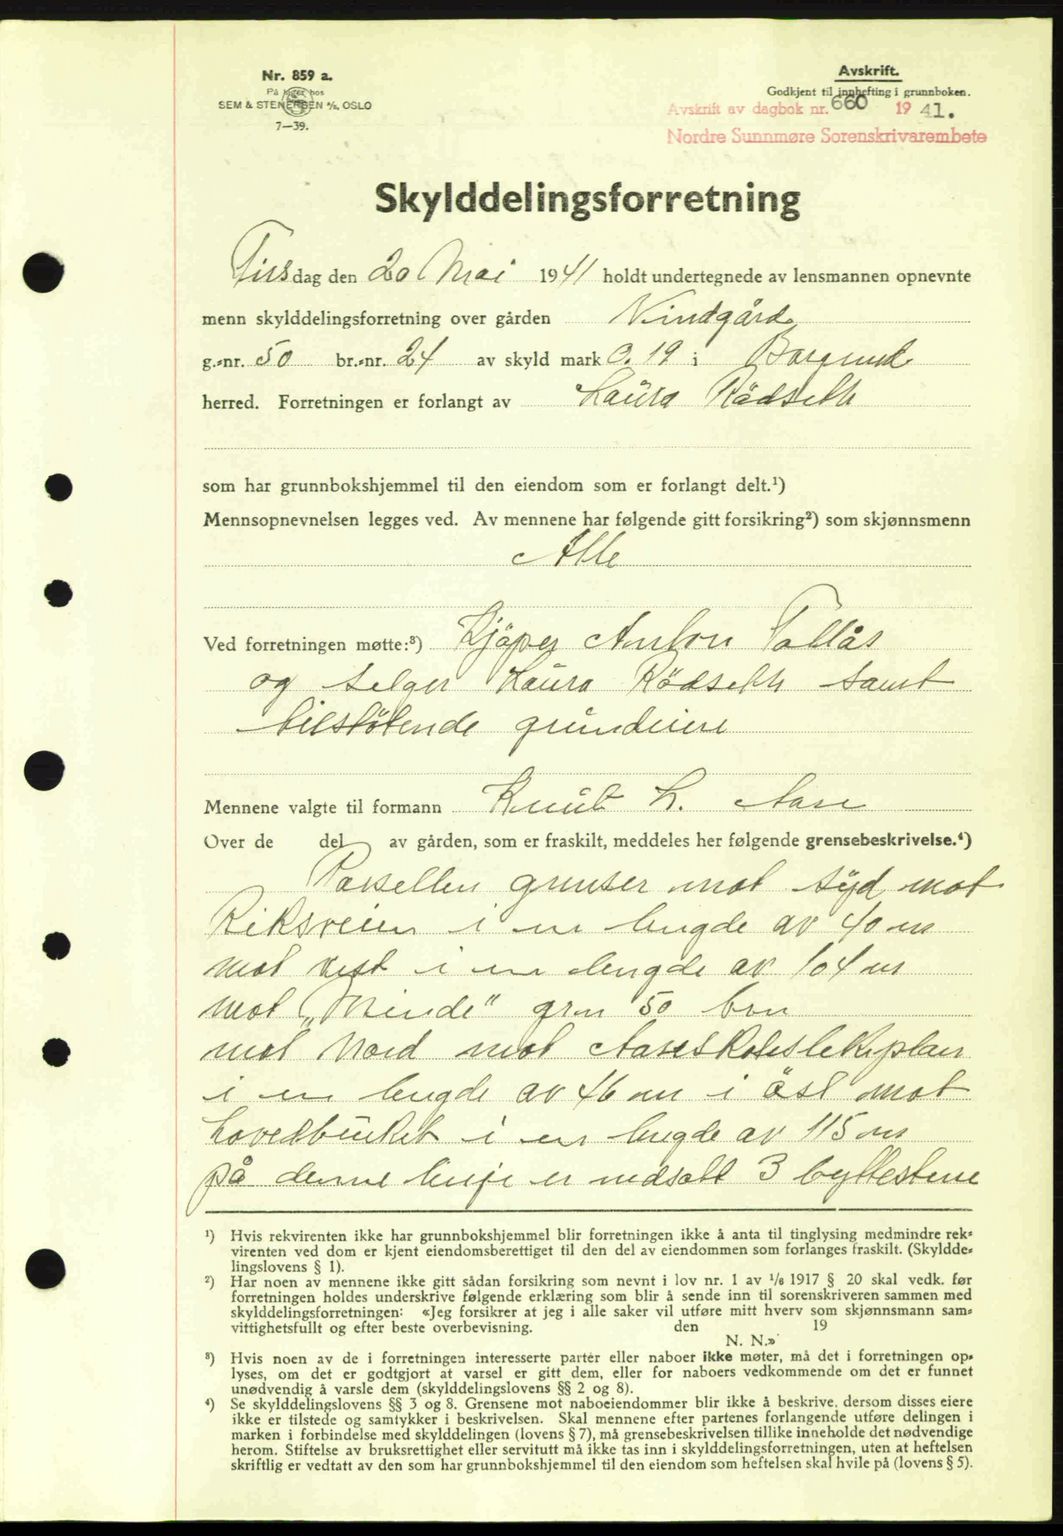 Nr. 859 a.
På lager hos
SEM & STENERSEN A/S, OSLO
7—39.
Avskrift.
Godkjent til innhefting i grunnboken.
Avskrift av dagbok nr. 660 1941.
Nordre Sunnmøre Sorenskrivarembete
Skylddelingsforretning
Tirsdag den 20 Mai 1941 holdt undertegnede av lensmannen opnevnte
menn skylddelingsforretning over gården Vindgård
g.-nr. 50 br.-nr. 24 av skyld mark 0.19 i Borgund
herred. Forretningen er forlangt av Laura Rödseth
som har grunnbokshjemmel til den eiendom som er forlangt delt.¹)
Mennsopnevnelsen legges ved. Av mennene har følgende gitt forsikring²) som skjønnsmenn
Alle
Ved forretningen møtte:³) Kjöper Anton Tollås
og selger Laura Rödseth samt
tilstøtende grundeiere
Mennene valgte til formann Knut L. Aase
Over de del av gården, som er fraskilt, meddeles her følgende grensebeskrivelse.⁴)
Parsellen grenser mot syd mot
Riksveien i en lengde av 40 m
mot vest i en lengde av 104 m
mot „Minde" grn 50 brn
mot Nord mot Aaseskoleslekeplan
i en lengde av 46 m i öst mot
hovedbruket i en lengde av 115 m
på denne linje er nedsatt 3 byttestene
¹) Hvis rekvirenten ikke har grunnbokshjemmel blir forretningen ikke å anta til tinglysing medmindre rek-
virenten ved dom er kjent eiendomsberettiget til den del av eiendommen som forlanges fraskilt. (Skyldde-
lingslovens § 1).
²) Har noen av mennene ikke gitt sådan forsikring som nevnt i lov nr. 1 av 1/6 1917 § 20 skal vedk. før
forretningen holdes underskrive følgende erklæring som blir å sende inn til sorenskriveren sammen med
skylddelingsforretningen: «Jeg forsikrer at jeg i alle saker vil utføre mitt hverv som skjønnsmann sam-
vittighetsfullt og efter beste overbevisning. den 19
N. N.»
³) Hvis noen av de i forretningen interesserte parter eller naboer ikke møter, må det i forretningen op-
lyses, om det er godtgjort at varsel er gitt dem, eller for naboers vedkommende om det er funnet
unødvendig å varsle dem (skylddelingslovens §§ 2 og 8).
⁴) Se skylddelingslovens §§ 3 og 8. Grensene mot naboeiendommer blir ikke å beskrive, dersom disses eiere
ikke er tilstede og samtykker i beskrivelsen. Skal mennene efter partenes forlangende utføre delingen i
marken i forbindelse med skylddelingen (lovens § 7), må grensebeskrivelsen tillike inneholde det nødvendige
herom. Stiftelse av bruksrettighet eller servitutt må ikke tas inn i skylddelingsforretningen, uten at heftelsen
skriftlig er vedtatt av den som har grunnbokshjemmel til den eiendom som heftelsen skal hvile på (lovens § 5).